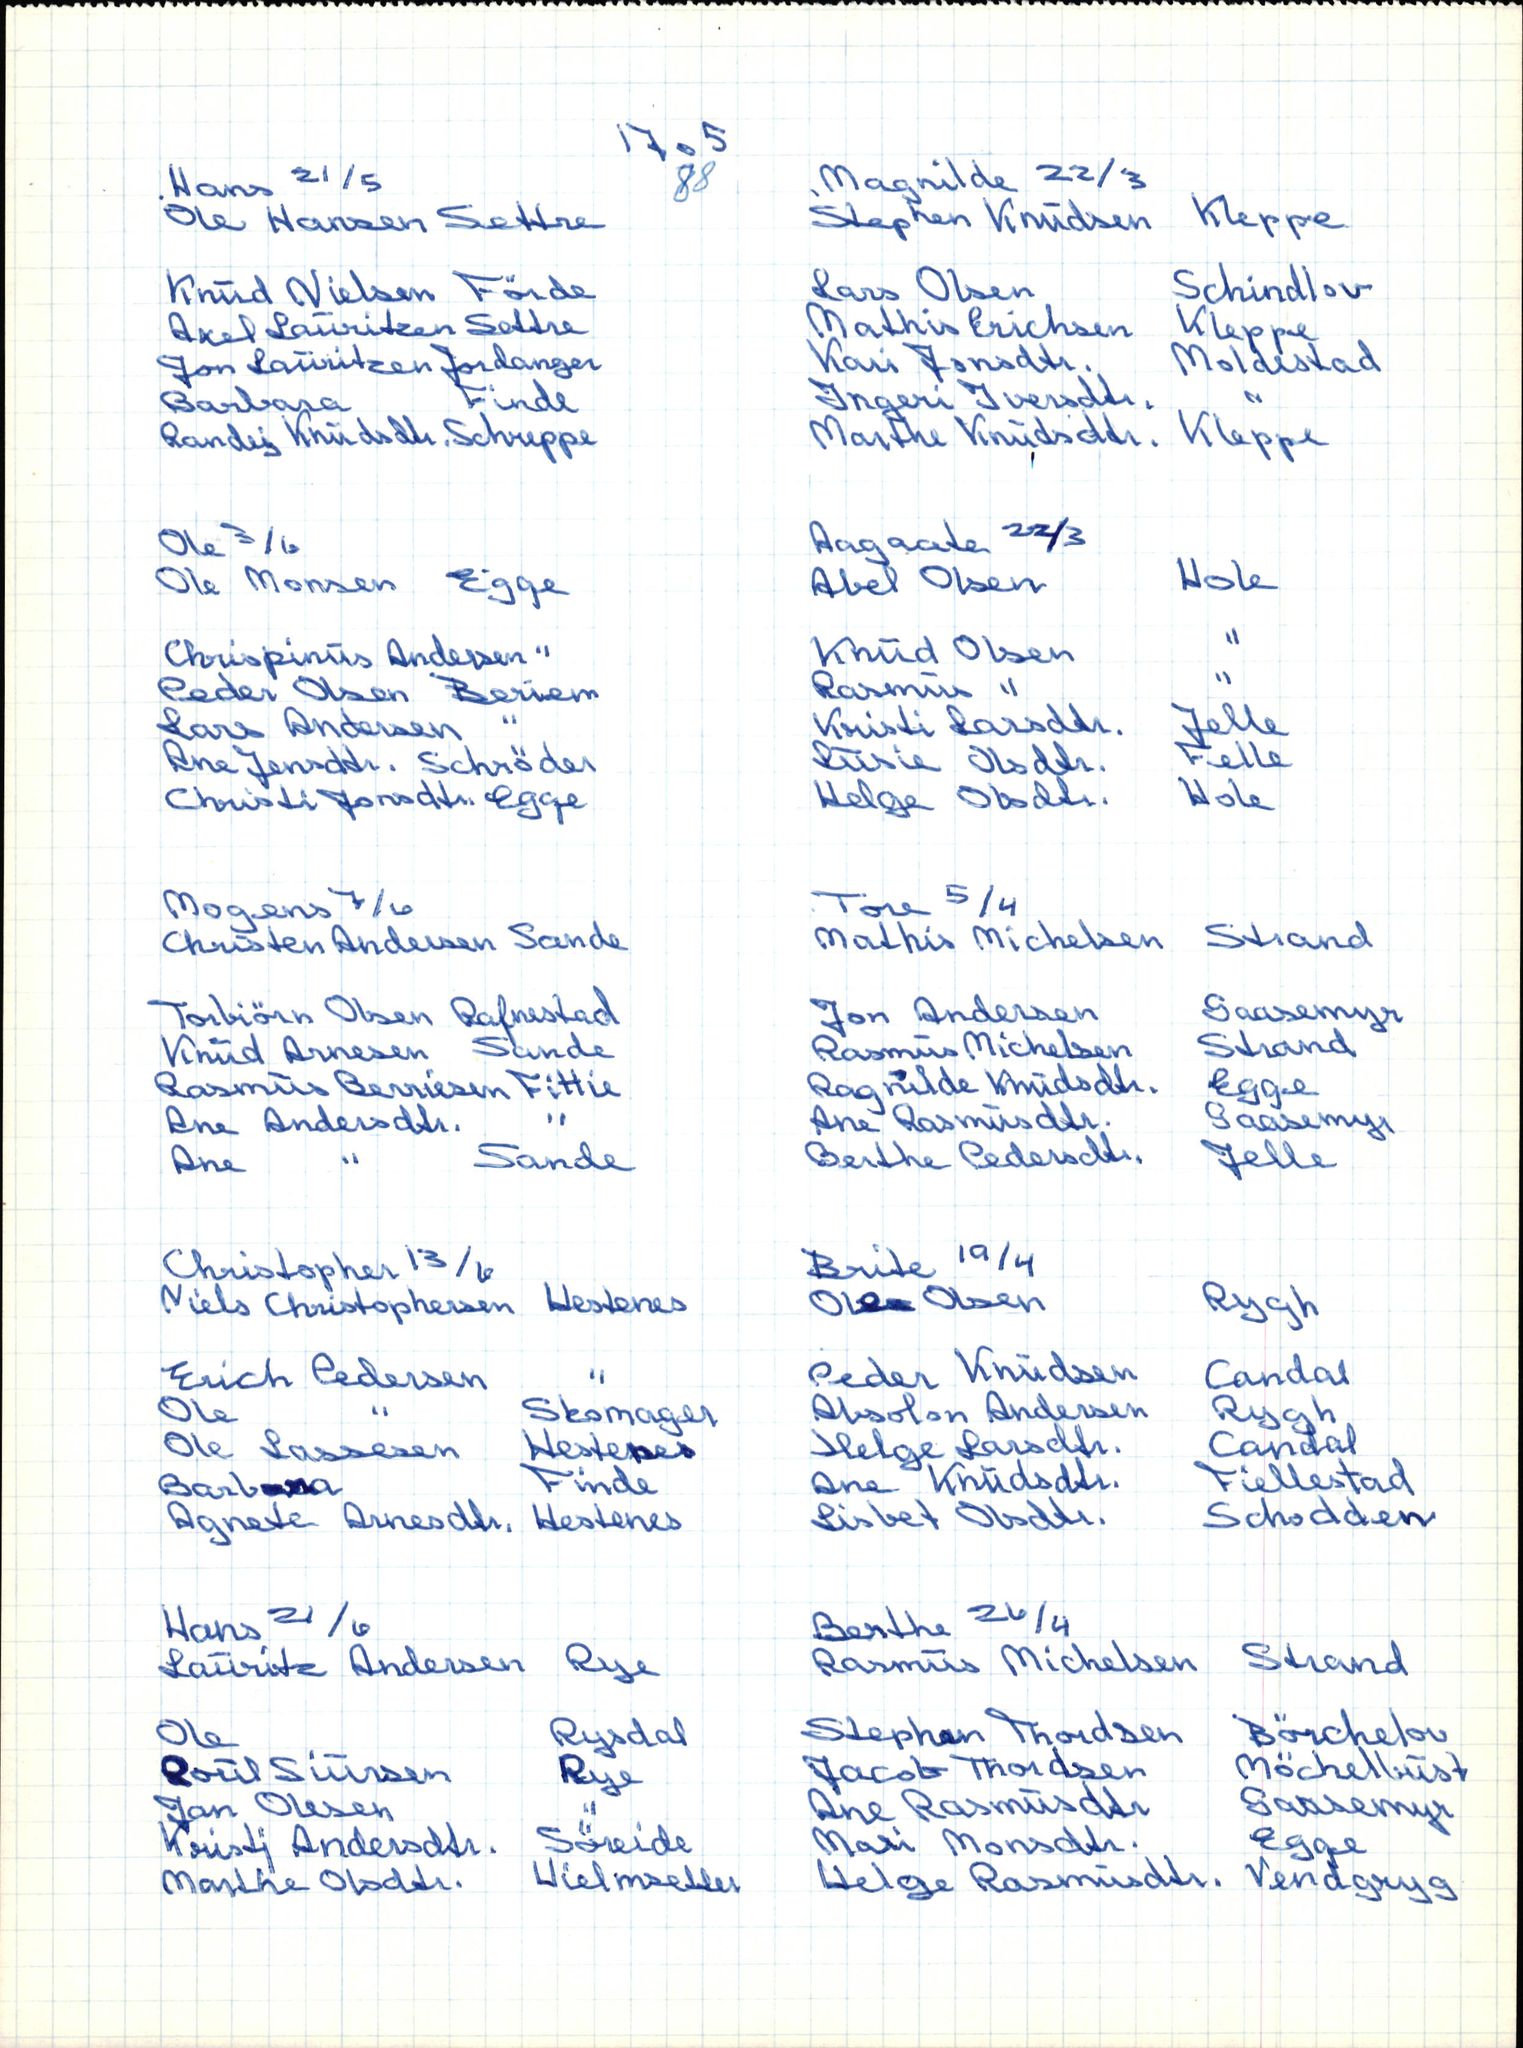 1705
88
Hans 21/5
Ole Hansen Settre
Knud Nielsen Förde
Axel Lauritzen Settre
Jon Lauritzen Jordanger
Barbara Finde
Randej Knudsdtr. Schreppe
Ole 3/6
Ole Monsen Egge
Chrispinus Andersen "
Peder Olsen Beriem
Lars Andersen "
Ane Jensdtr. Schröder
Christi Jonsdtr. Egge
Mogens 7/6
Christen Andersen Sande
Torbiörn Olsen Rafnestad
Knud Arnesen Sande
Rasmus Berriesen Fittie
Ane Andersdtr. "
Ane " Sande
Christopher 13/6
Niels Christophersen Hestenes
Erich Pedersen "
Ole " Skomager
Ole Lassesen Hestenes
Barbara Finde
Agnete Arnesdtr. Hestenes
Hans 21/6
Lauritz Andersen Rye
Ole Rysdal
Poul Siursen Rye
Jan Olesen "
Kristj Andersdtr. Söreide
Marthe Olsdtr. Hielmsetter
Magnilde 22/3
Stephen Knudsen Kleppe
Lars Olsen Schindlov
Mathis Erichsen Kleppe
Kari Jonsdtr. Moldestad
Ingeri Iversdtr. "
Marthe Knudsdtr. Kleppe
Aagaate 22/3
Abel Olsen Hole
Knud Olsen "
Rasmus " "
Kristi Larsdtr. Jelle
Lusie Olsdtr. Felle
Helge Olsdtr. Hole
Tore 5/4
Mathis Michelsen Strand
Jon Andersen Gaasemyr
Rasmus Michelsen Strand
Ragnilde Knudsdtr. Egge
Ane Rasmusdtr. Gaasemyr
Berthe Pedersdtr. Jelle
Brite 19/4
Ole Olsen Rygh
Peder Knudsen Candal
Absolon Andersen Rygh
Helge Larsdtr. Candal
Ane Knudsdtr. Fiellestad
Lisbet Olsdtr. Schodden
Berthe 26/4
Rasmus Michelsen Strand
Stephen Thordsen Börchelov
Jacob Thordsen Möchelbust
Ane Rasmusdtr Gaasemyr
Mari Monsdtr. Egge
Helge Rasmusdtr. Vendgryg